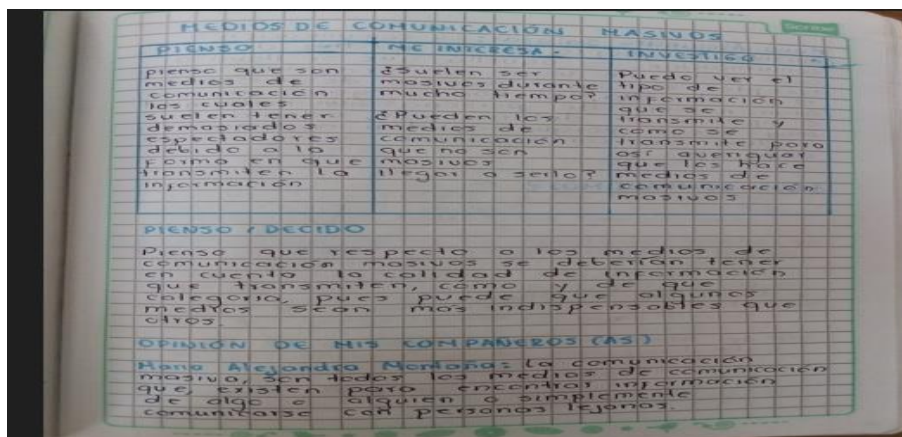 MEDIOS DE COMUNICACIÓN MASIVOS
PIENSO
pienso que son
medios de
comunicación
los cuales
suelen tener
demasiados
espectadores
debido a la
forma en que
transmiten la
información
ME INTERESA
¿Suelen ser
masivos durante
mucho tiempo?
¿Pueden los
medios de
comunicación
que no son
masivos
llegar a serlo?
INVESTIGO
Puedo ver el
tipo de
información
que se
transmite y
como se
transmite para
así averiguar
que los hace
medios de
comunicación
masivos
PIENSO / DECIDO
Pienso que respecto a los medios de
comunicación masivos se deberían tener
en cuenta la calidad de información
que transmiten, como y de que
categoria, pues puede que algunos
medios sean más indispensables que
otros.
OPINIÓN DE MIS COMPAÑEROS (AS)
Maria Alejandra Montaña: La comunicación
masiva, son todos los medios de comunicación
que existen para encontrar información
de algo o alguien o simplemente
comunicarse con personas lejanas.